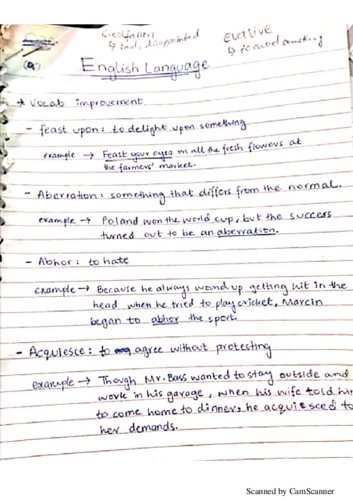 Crestfallen
↳ sad, disappointed
Evasive
↳ to avoid something
English Language
→ Vocab improvement
- feast upon: to delight upon something
example → Feast your eyes on all the fresh flowers at
the farmers' market.
- Aberration: something that differs from the normal.
example → Poland won the world cup, but the success
turned out to be an aberration.
- Abhor: to hate
example → Because he always wound up getting hit in the
head when he tried to play cricket, Marcin
began to abhor the sport.
- Acquiesce: to agree without protesting
example → Though Mr. Bass wanted to stay outside and
work in his garage, when his wife told him
to come home to dinner, he acquiesced to
her demands.
Scanned by CamScanner